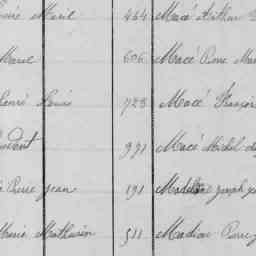 Marie 464 Macé Arthur
Marie 606 Macé Pierre Marie
Henri Louis 723 Macé François
991 Macé Michel
Pierre Jean 191 Madeleine Joseph
Marie Mathurin 511 Madiou Pierre